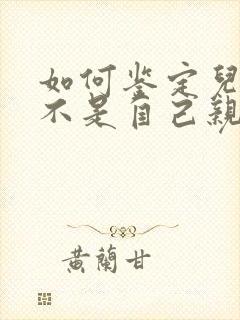 如何鉴定兒
不是自己親
黄蘭甘